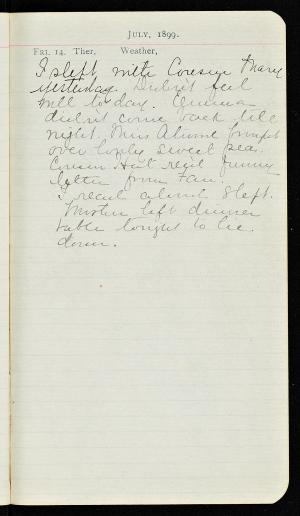 July, 1899.
Fri. 14. Ther, Weather,
I slept with Cousin Mary
yesterday. Didn't feel
well to day. Emma
didn't come back till
night. Miss brought
over lovely sweet pea.
Cousin Hat rec'd funny
letter from Fan.
I read aloud & left.
left dinner
table to night to lie
down.